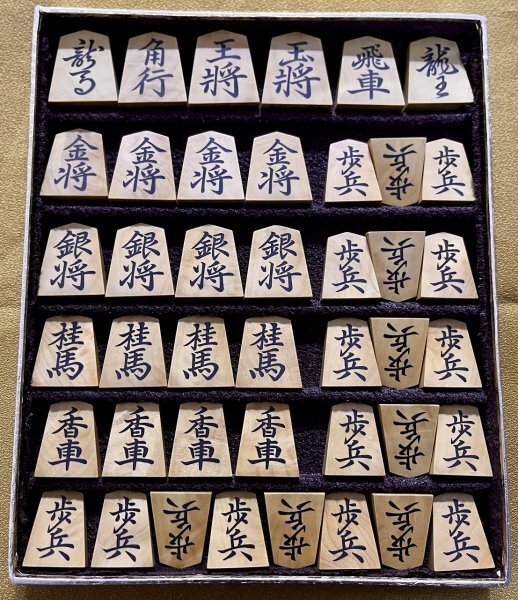 龍馬 角行 王将 玉将 飛車 龍王
金将 金将 金将 金将 歩兵 歩兵 歩兵
銀将 銀将 銀将 銀将 歩兵 歩兵 歩兵
桂馬 桂馬 桂馬 桂馬 歩兵 歩兵 歩兵
香車 香車 香車 香車 歩兵 歩兵 歩兵
歩兵 歩兵 歩兵 歩兵 歩兵 歩兵 歩兵 歩兵